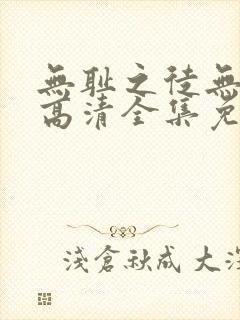 無耻之徒無
高清全集免
淺倉秋成 大深